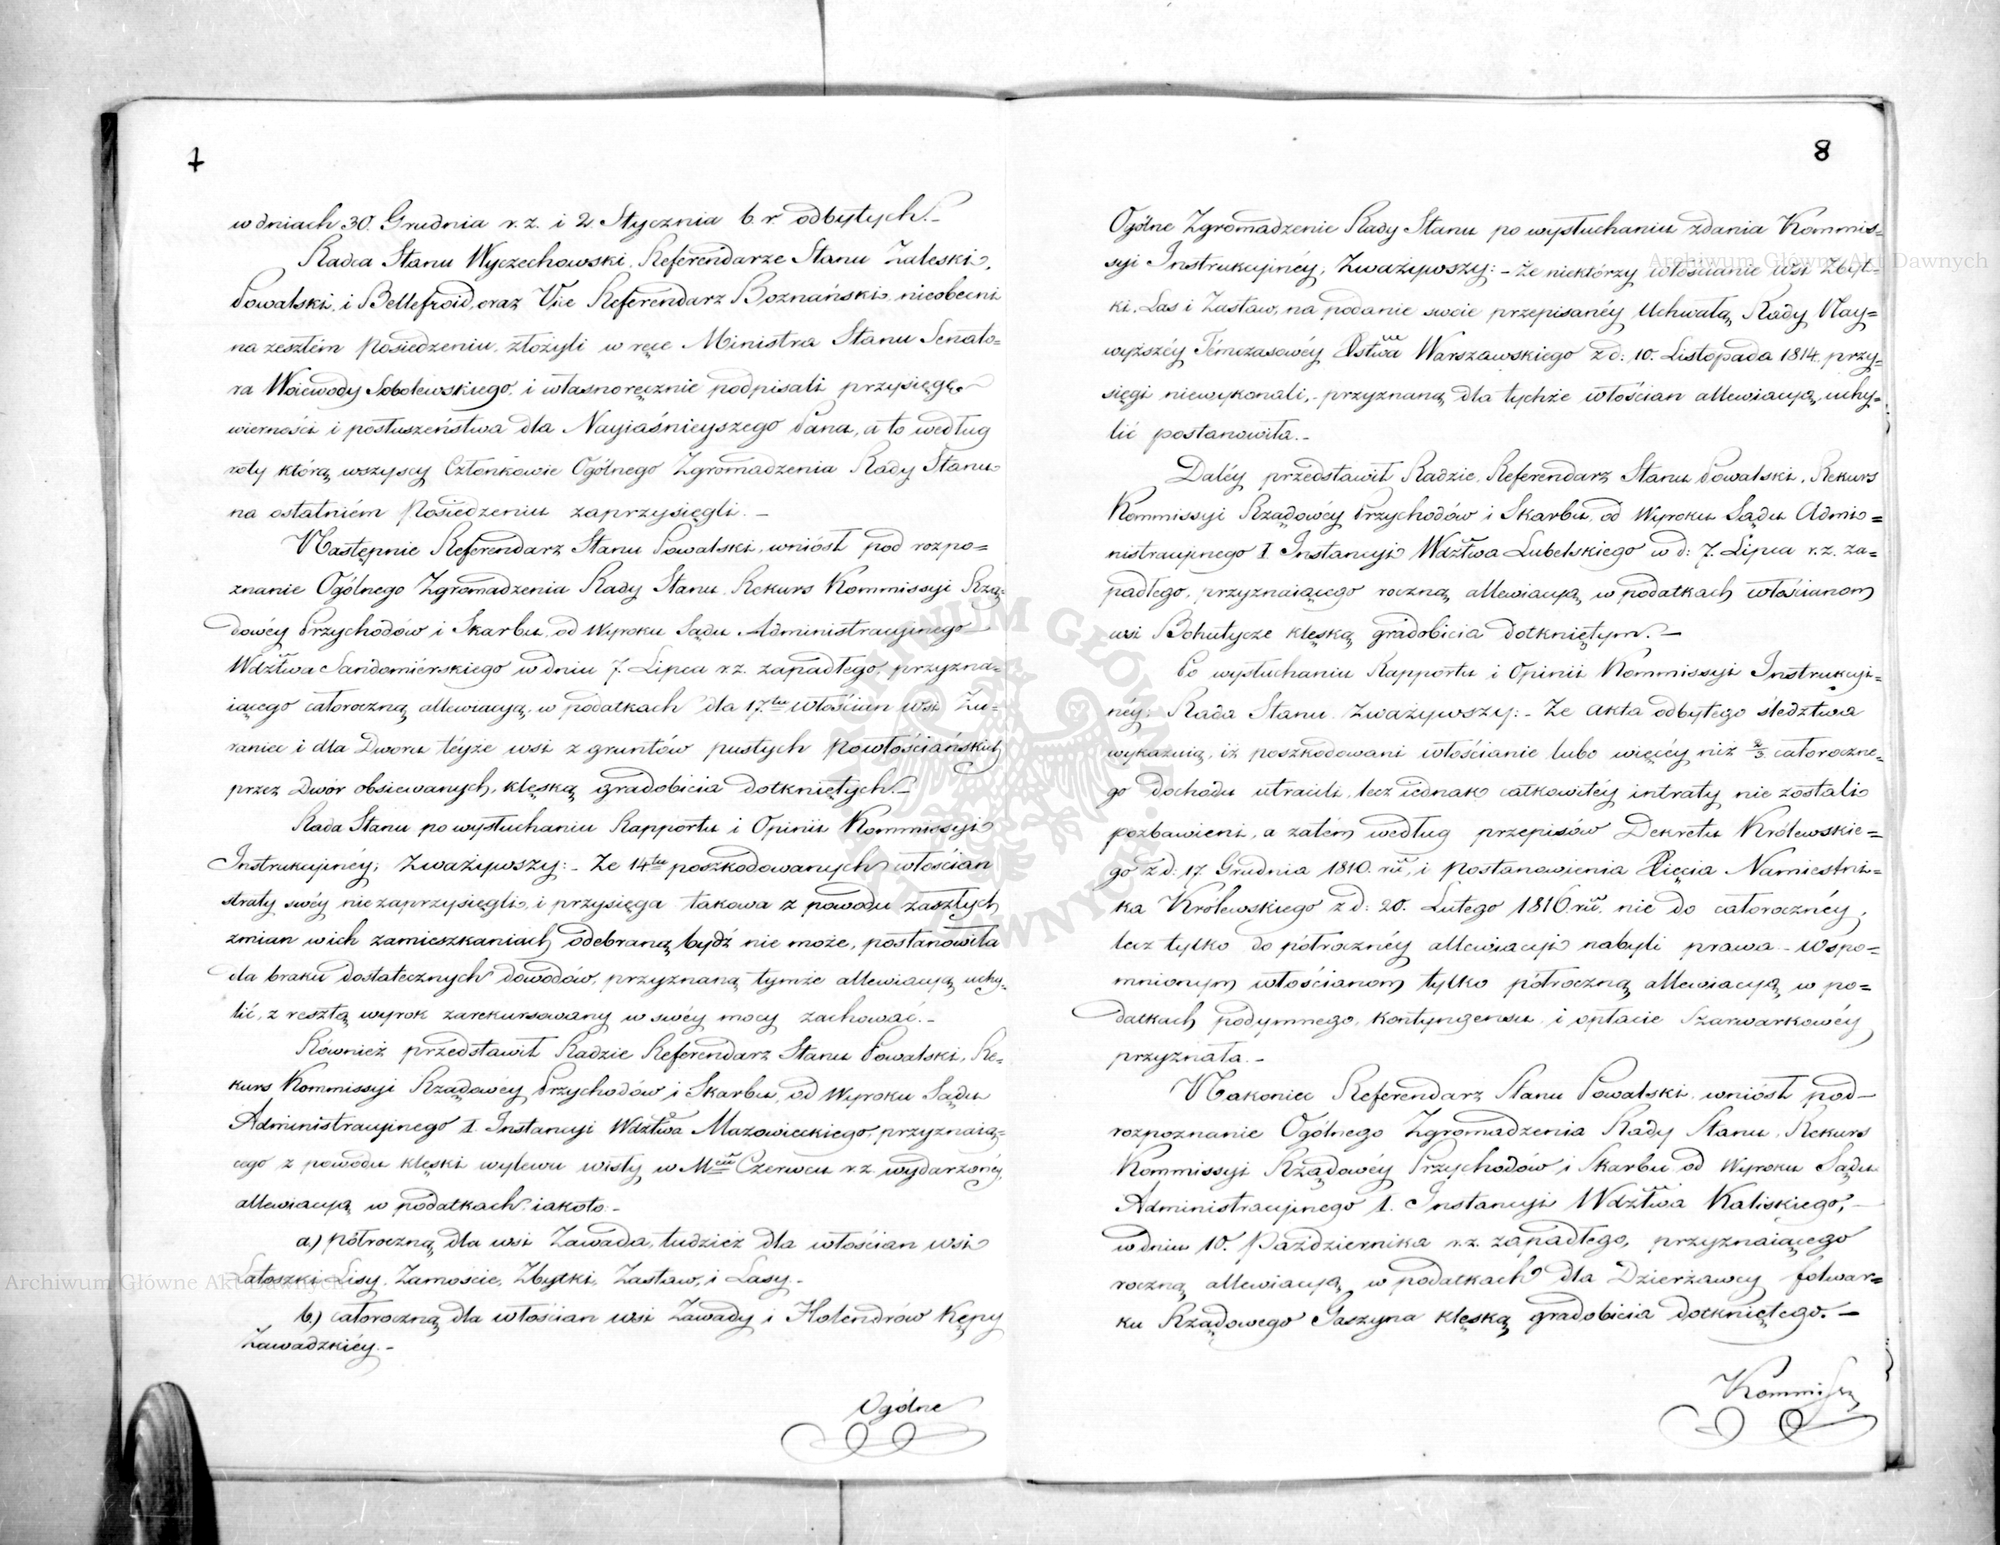 7
w dniach 30. Grudnia r. z. i 2. Stycznia b. r. odbytych. –
Radca Stanu Wyczechowski, Referendarze Stanu Zaleski,
Powalski, i Bellefroid, oraz Vice Referendarz Boznański nieobecni
na zeszłém Posiedzeniu, złożyli w ręce Ministra Stanu Senato=
ra Woiewody Sobolewskiego, i własnoręcznie podpisali przysięgę
wierności i posłuszeństwa dla Nayiaśnieyszego Pana, a to według
roty którą wszyscy Członkowie Ogólnego Zgromadzenia Rady Stanu
na ostatniém Posiedzeniu zaprzysięgli. –
Następnie Referendarz Stanu Powalski, wniósł pod rozpo=
znanie Ogólnego Zgromadzenia Rady Stanu, Rekurs Kommissyi Rzą=
dowéy Przychodów i Skarbu, od Wyroku Sądu Administracyinego
Wdztwa Sandomierskiego w dniu 7. Lipca r. z. zapadłego, przyzna=
iącego całoroczną allewiacyą, w podatkach dla 17.tu włościan wsi Zu=
raniec i dla Dworu téyże wsi z gruntów pustych Powłościańskich
przez Dwór obsiewanych, klęską gradobicia dotkniętych. –
Rada Stanu po wysłuchaniu Rapportu i Opinii Kommissyi
Instrukcyinéy; Zważywszy: – Że 14tu poszkodowanych włościan
straty swéy niezaprzysięgli, i przysięga takowa z powodu zaszłych
zmian w ich zamieszkaniach odebraną bydź nie może, postanowiła
dla braku dostatecznych dowodów, przyznaną tymże allewiacyą uchy=
lić, z resztą wyrok zarekursowany w swéy mocy zachować. –
Również przedstawił Radzie Referendarz Stanu Powalski, Re=
kurs Kommissyi Rządowéy Przychodów i Skarbu, od Wyroku Sądu
Administracyinego I. Instancyi Wdztwa Mazowieckiego, przyznaią=
cego z powodu klęski wylewu wisły w Mcu Czerwcu r. z. wydarzonéy,
allewiacyą w podatkach, iakoto. –
a.) półroczną dla wsi Zawada, tudzież dla włościan wsi
Latoszki Lisy, Zamoście, Zbytki, Zastaw, i Lasy. –
b.) całoroczną dla włościan wsi Zawady i Holendrów Kępy
Zawadzkiéy. –
Ogólne
8
Ogólne Zgromadzenie Rady Stanu po wysłuchaniu zdania Kommis=
syi Instrukcyinéy, Zważywszy: – Że niektórzy włościanie wsi Zbyt=
ki, Las i Zastaw, na podanie swoie przepisanéy Uchwałą Rady Nay=
wyższéy Tymczasowéy Xstwa Warszawskiego z d: 10. Listopada 1814. przy=
sięgi niewykonali, – przyznaną dla tychże włościan allewiacyą, uchy=
lić postanowiła. –
Daléy przedstawił Radzie, Referendarz Stanu Powalski, Rekurs
Kommissyi Rządowéy Przychodów i Skarbu, od Wyroku Sądu Admi=
nistracyinego I. Instancyi Wdztwa Lubelskiego w d: 7. Lipca r. z. za=
padłego, przyznaiącego roczną allewiacyą w podatkach włościanom
wsi Bohutycze klęską gradobicia dotkniętym. –
Po wysłuchaniu Rapportu i Opinii Kommissyi Instrukcyi=
néy; Rada Stanu, Zważywszy: – Że Akta odbytego śledztwa
wykazuią, iż poszkodowani włościanie lubo więcéy niż 2/3 całoroczne=
go dochodu utracili, lecz iednak całkowitéy intraty nie zostali
pozbawieni, a zatém według przepisów Dekretu Królewskie=
go z d: 17 Grudnia 1810. ru, i Postanowienia Xięcia Namiestni=
ka Królewskiego z d: 20. Lutego 1816. ru, nie do całorocznéy,
lecz tylko do półrocznéy allewiacyi nabyli prawa. – Wspo=
mnionym włościanom tylko półroczną allewiacyą w po=
datkach podymnego, kontyngensu, i opłacie Szarwarkowéy
przyznała. –
Nakoniec Referendarz Stanu Powalski, wniósł pod
rozpoznanie Ogólnego Zgromadzenia Rady Stanu, Rekurs
Kommissyi Rządowéy Przychodów i Skarbu od Wyroku Sądu
Administracyinego I. Instancyi Wdztwa Kaliskiego, –
w dniu 10. Października r. z. zapadłego, przyznaiącego
roczną allewiacyą w podatkach dla Dzierżawcy folwar=
ku Rządowego Gaszyna klęską gradobicia dotkniętego. –
Archiwum Główne Akt Dawnych
Archiwum Główne Akt Dawnych
ARCHIWUM GŁÓWNE AKT DAWNYCH